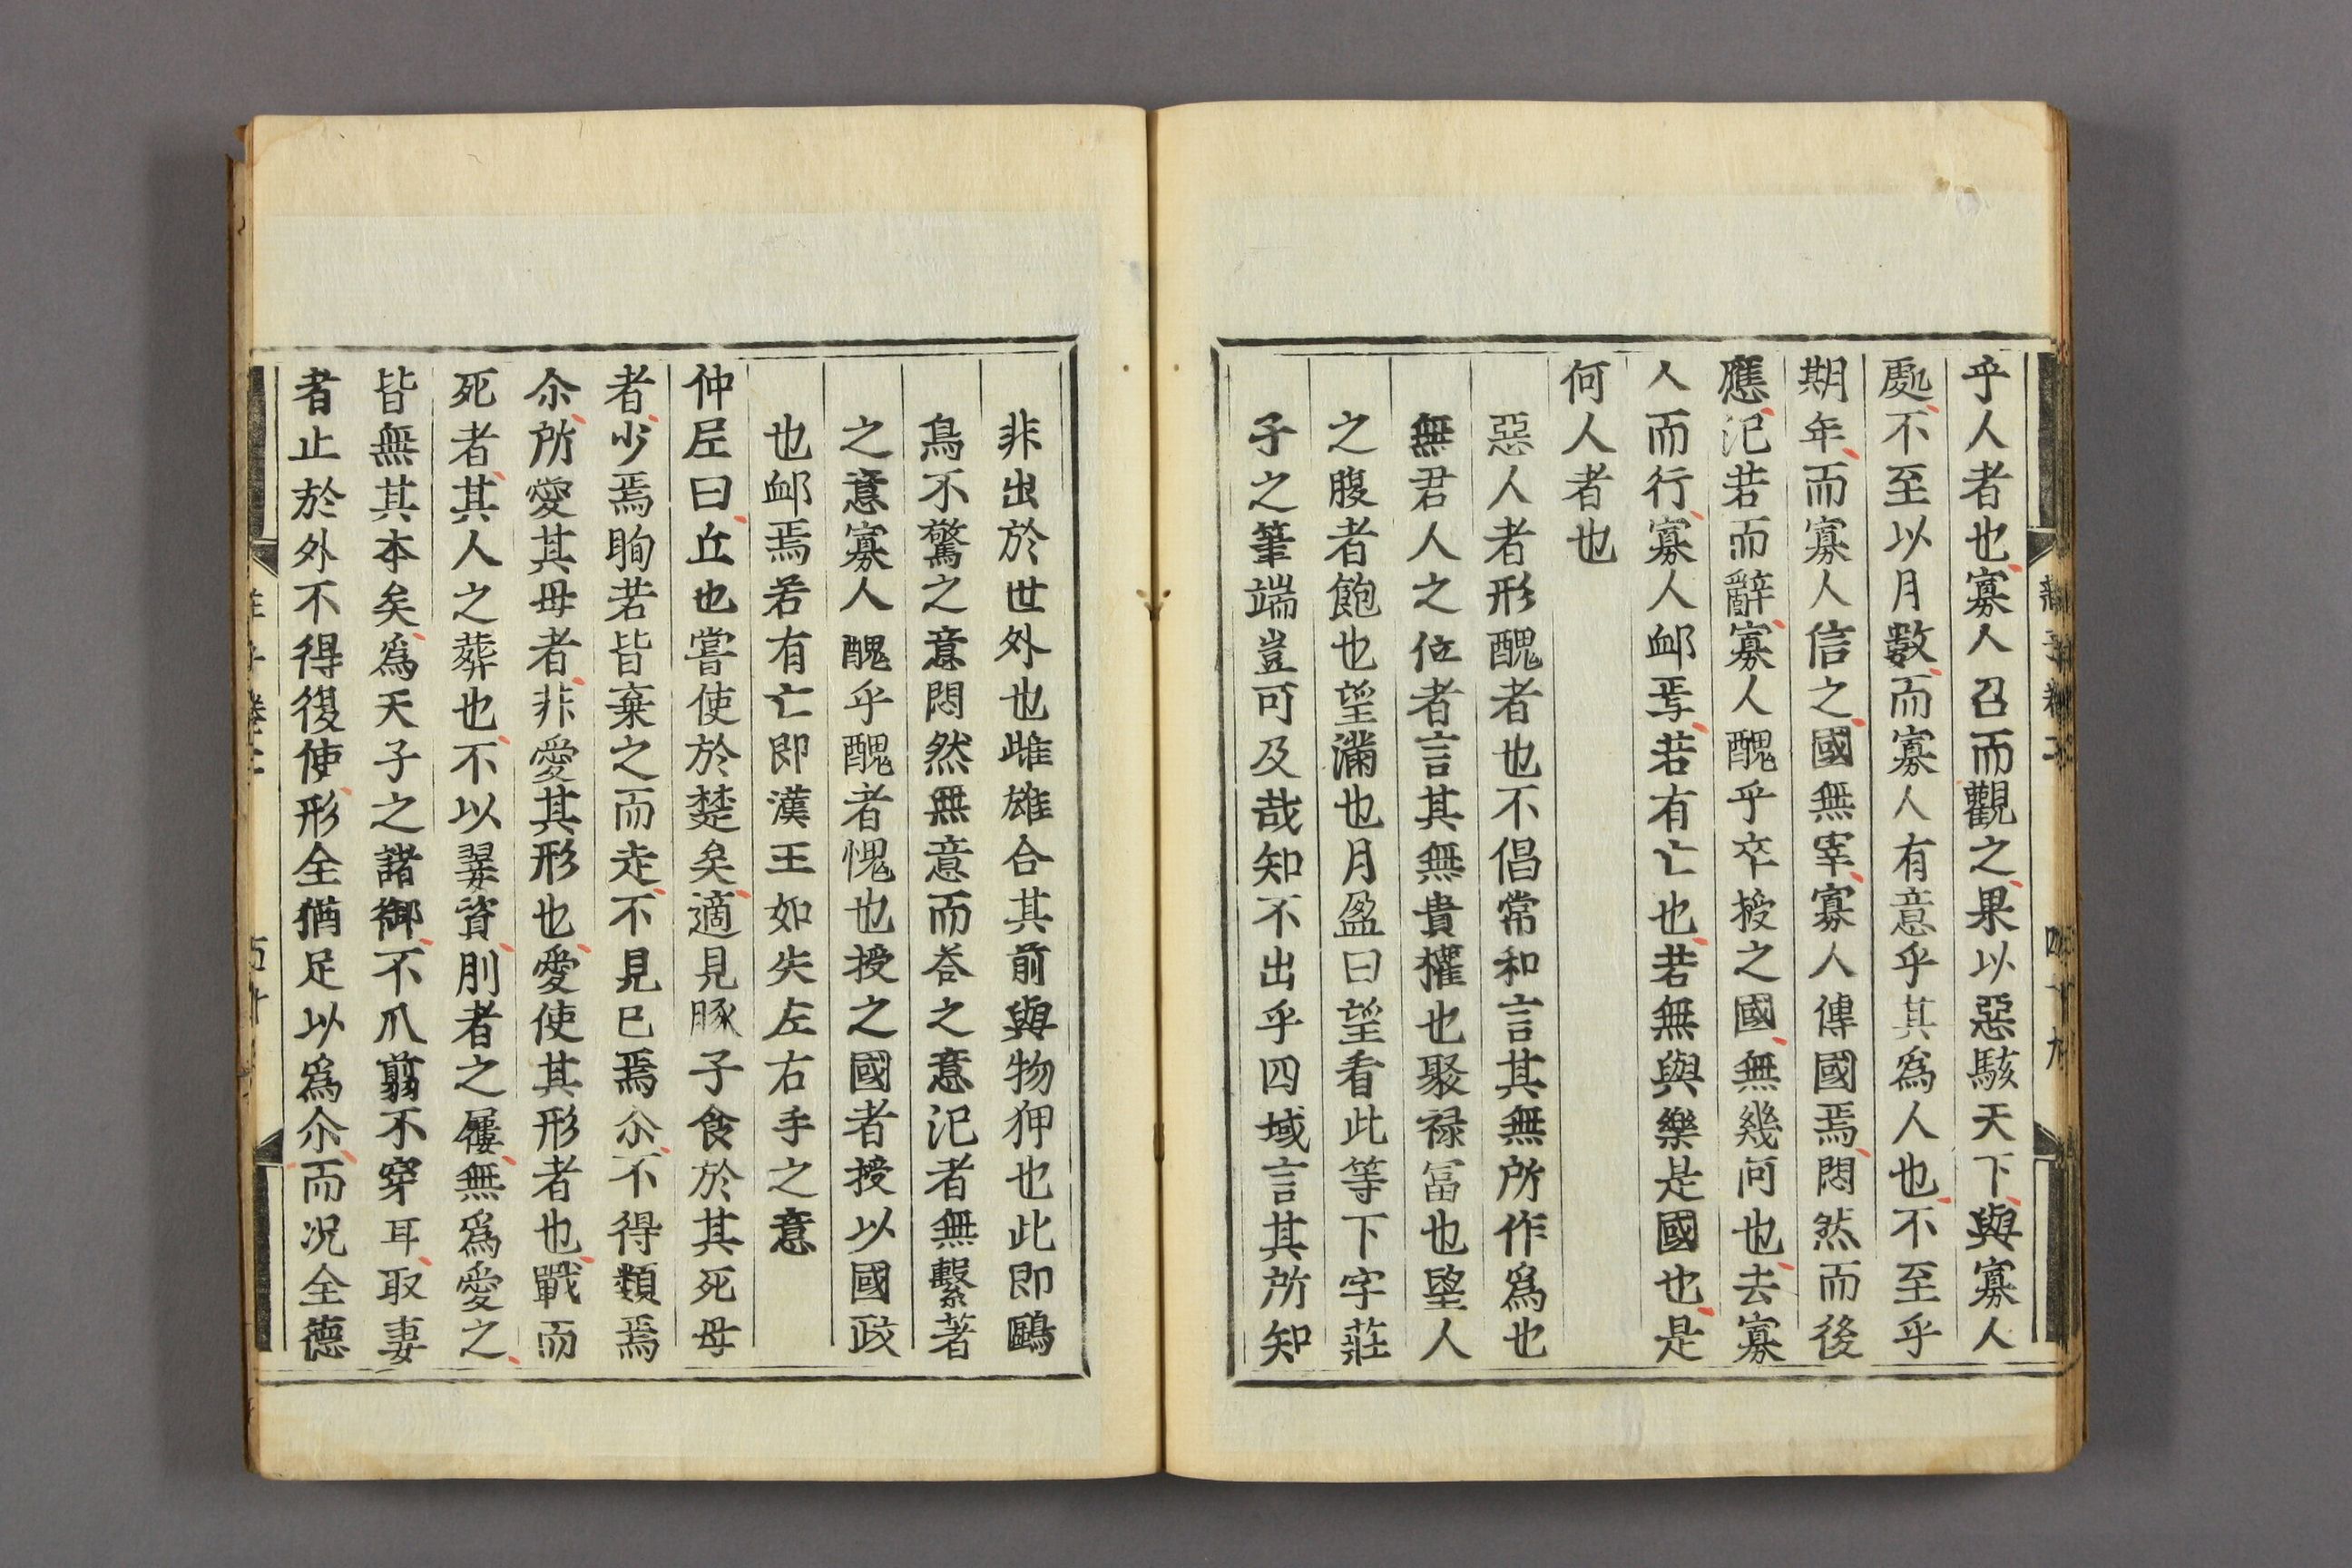 乎人者也寡人召而觀之果以惡駭天下與寡人
處不至以月數而寡人有意乎其爲人也不至乎
期年而寡人信之國無宰寡人傳國焉悶然而後
應氾若而辭寡人醜乎卒授之國無幾何也去寡
人而行寡人卹焉若有亡也若無與樂是國也是
何人者也
惡人者形醜者也不倡常和言其無所作爲也
無君人之位者言其無貴權也聚祿冨也望人
之腹者飽也望滿也月盈曰望看此等下字莊
子之筆端豈可及哉知不出乎四域言其所知
非出於世外也雌雄合其前與物狎也此即鷗
鳥不驚之意悶然無意而荅之意氾者無繫著
之意寡人醜乎醜者愧也授之國者授以國政
也卹焉若有亡即漢王如失左右手之意
仲尼曰丘也嘗使於楚矣適見豚子食於其死母
者少焉眴若皆棄之而走不見已焉尒不得類焉
尒所愛其母者非愛其形也愛使其形者也戰而
死者其人之葬也不以翣資刖者之屨無爲愛之
皆無其本矣爲天子之諸御不爪翦不穿耳取妻
者止於外不得復使形全猶足以爲尒而况全德